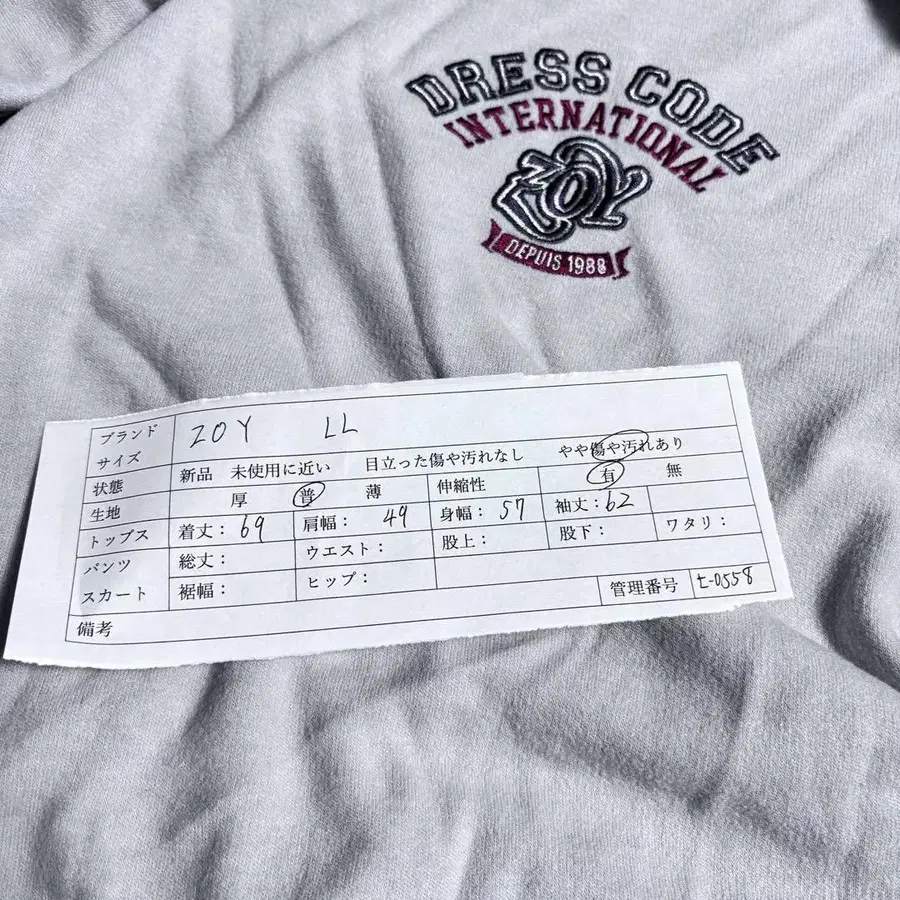 DRESS CODE
INTERNATIONAL
ZOY
DEPUIS 1988
ブランド
サイズ ZOY LL
状態 新品 未使用に近い 目立った傷や汚れなし やや傷や汚れあり
生地 厚 普 薄 伸縮性 有 無
トップス 着丈:69 肩幅:49 身幅:57 袖丈:62
パンツ 総丈: ウエスト: 股上: 股下: ワタリ:
スカート 裾幅: ヒップ: 管理番号 t-0558
備考